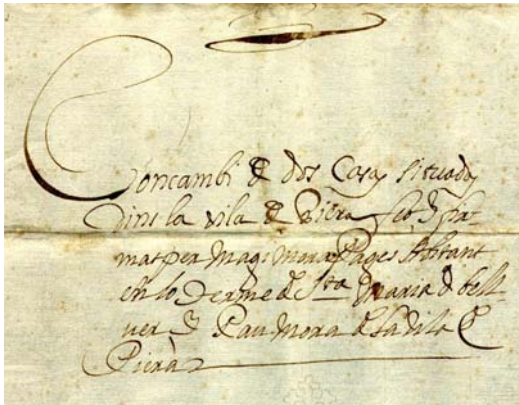 Concambi de dos Casas situadas
dins la vila de Piera feo y fir-
mat per Magi Mora Pages habitant
en lo Terme de Sta Maria de bell-
ver y Pau Mora de la vila de
Piera